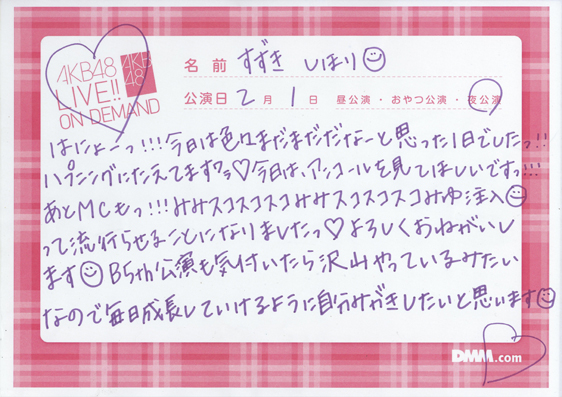 AKB48
LIVE!!
ON DEMAND
AKB
48
名前 すずき しほり
公演日 2月1日 昼公演・おやつ公演・夜公演
はにょーっ!!!今日は色々まだまだだなーと思った1日でしたっ!!
ハプニングにたえてます♡今日は、アンコールを見てほしいですっ!!!
あとMCもっ!!!みみスコスコスコみみスコスコスコみゆ注入
って流行らせることになりましたっ♡よろしくおねがいし
ます B5th公演も気付いたら沢山やっているみたい
なので毎日成長していけるように自分みがきしたいと思います
DMM.com